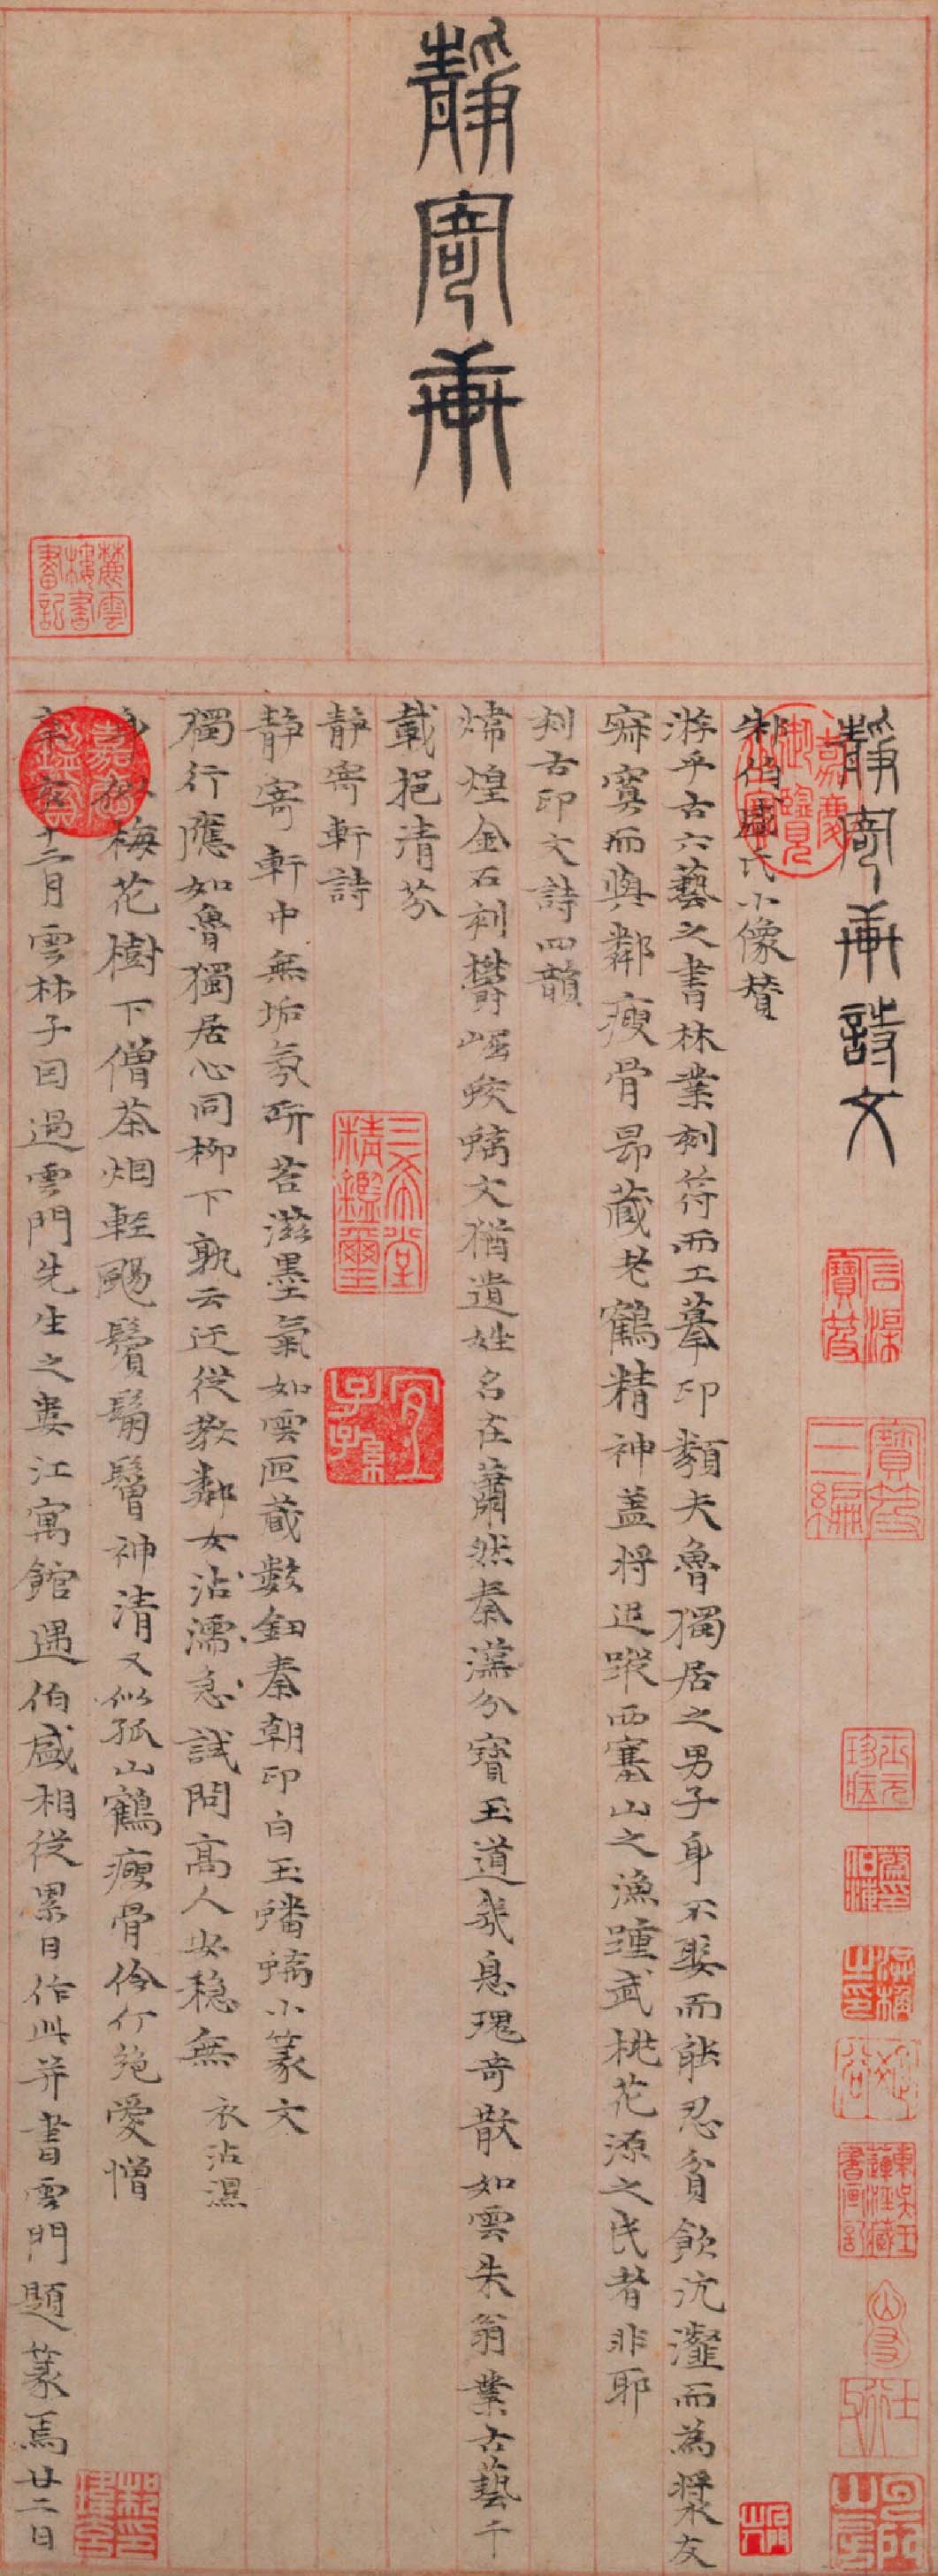 靜寄軒
麓雲樓書畫記
靜寄軒詩文
朱伯盛氏小像贊
游乎古六藝之書林業刻符而工摹印類夫魯獨居之男子身不娶而能忍貧飲沆瀣而為漿友
寂寞而與鄰瘦骨昂藏老鶴精神蓋將追蹤西塞山之漁踵武桃花源之民者非耶
刻古印文詩四韻
煒煌金石刻欝崛蛟螭文猶遺姓名在蕭然秦漢分寶玉道幾息瑰奇散如雲朱翁業古藝千
載挹清芬
靜寄軒詩
靜寄軒中無垢氛研苔滋墨氣如雲匣藏數鈕秦朝印白玉蟠螭小篆文
獨行應如魯獨居心同柳下孰云迂從教鄰女沾濡急試問高人安穩無
衣沾濕
身似梅花樹下僧茶煙輕颺鬢鬅鬙神清又似孤山鶴瘦骨伶仃絕愛憎
辛亥十二月雲林子因過雲門先生之婁江寓館遇伯盛相從累日作此并書雲門題篆焉廿二日
嘉慶御覽之寶
石渠寶笈
寶笈三編
三希堂精鑑璽
宜子孫
嘉慶鑑賞